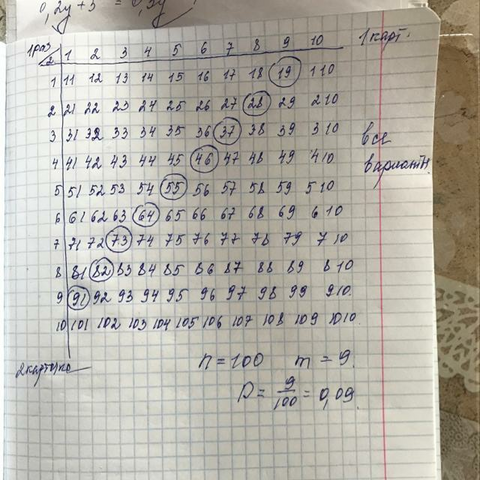 0,2y + 3 = 0,5y
1 раз 1 2 3 4 5 6 7 8 9 10 1 карт.
1 11 12 13 14 15 16 17 18 19 110
2 21 22 23 24 25 26 27 28 29 210
3 31 32 33 34 35 36 37 38 39 310 все
4 41 42 43 44 45 46 47 48 49 410 варианты
5 51 52 53 54 55 56 57 58 59 510
6 61 62 63 64 65 66 67 68 69 610
7 71 72 73 74 75 76 77 78 79 710
8 81 82 83 84 85 86 87 88 89 810
9 91 92 93 94 95 96 97 98 99 910
10 101 102 103 104 105 106 107 108 109 1010
2 карточка n = 100 m = 9.
P = 9/100 = 0,09.